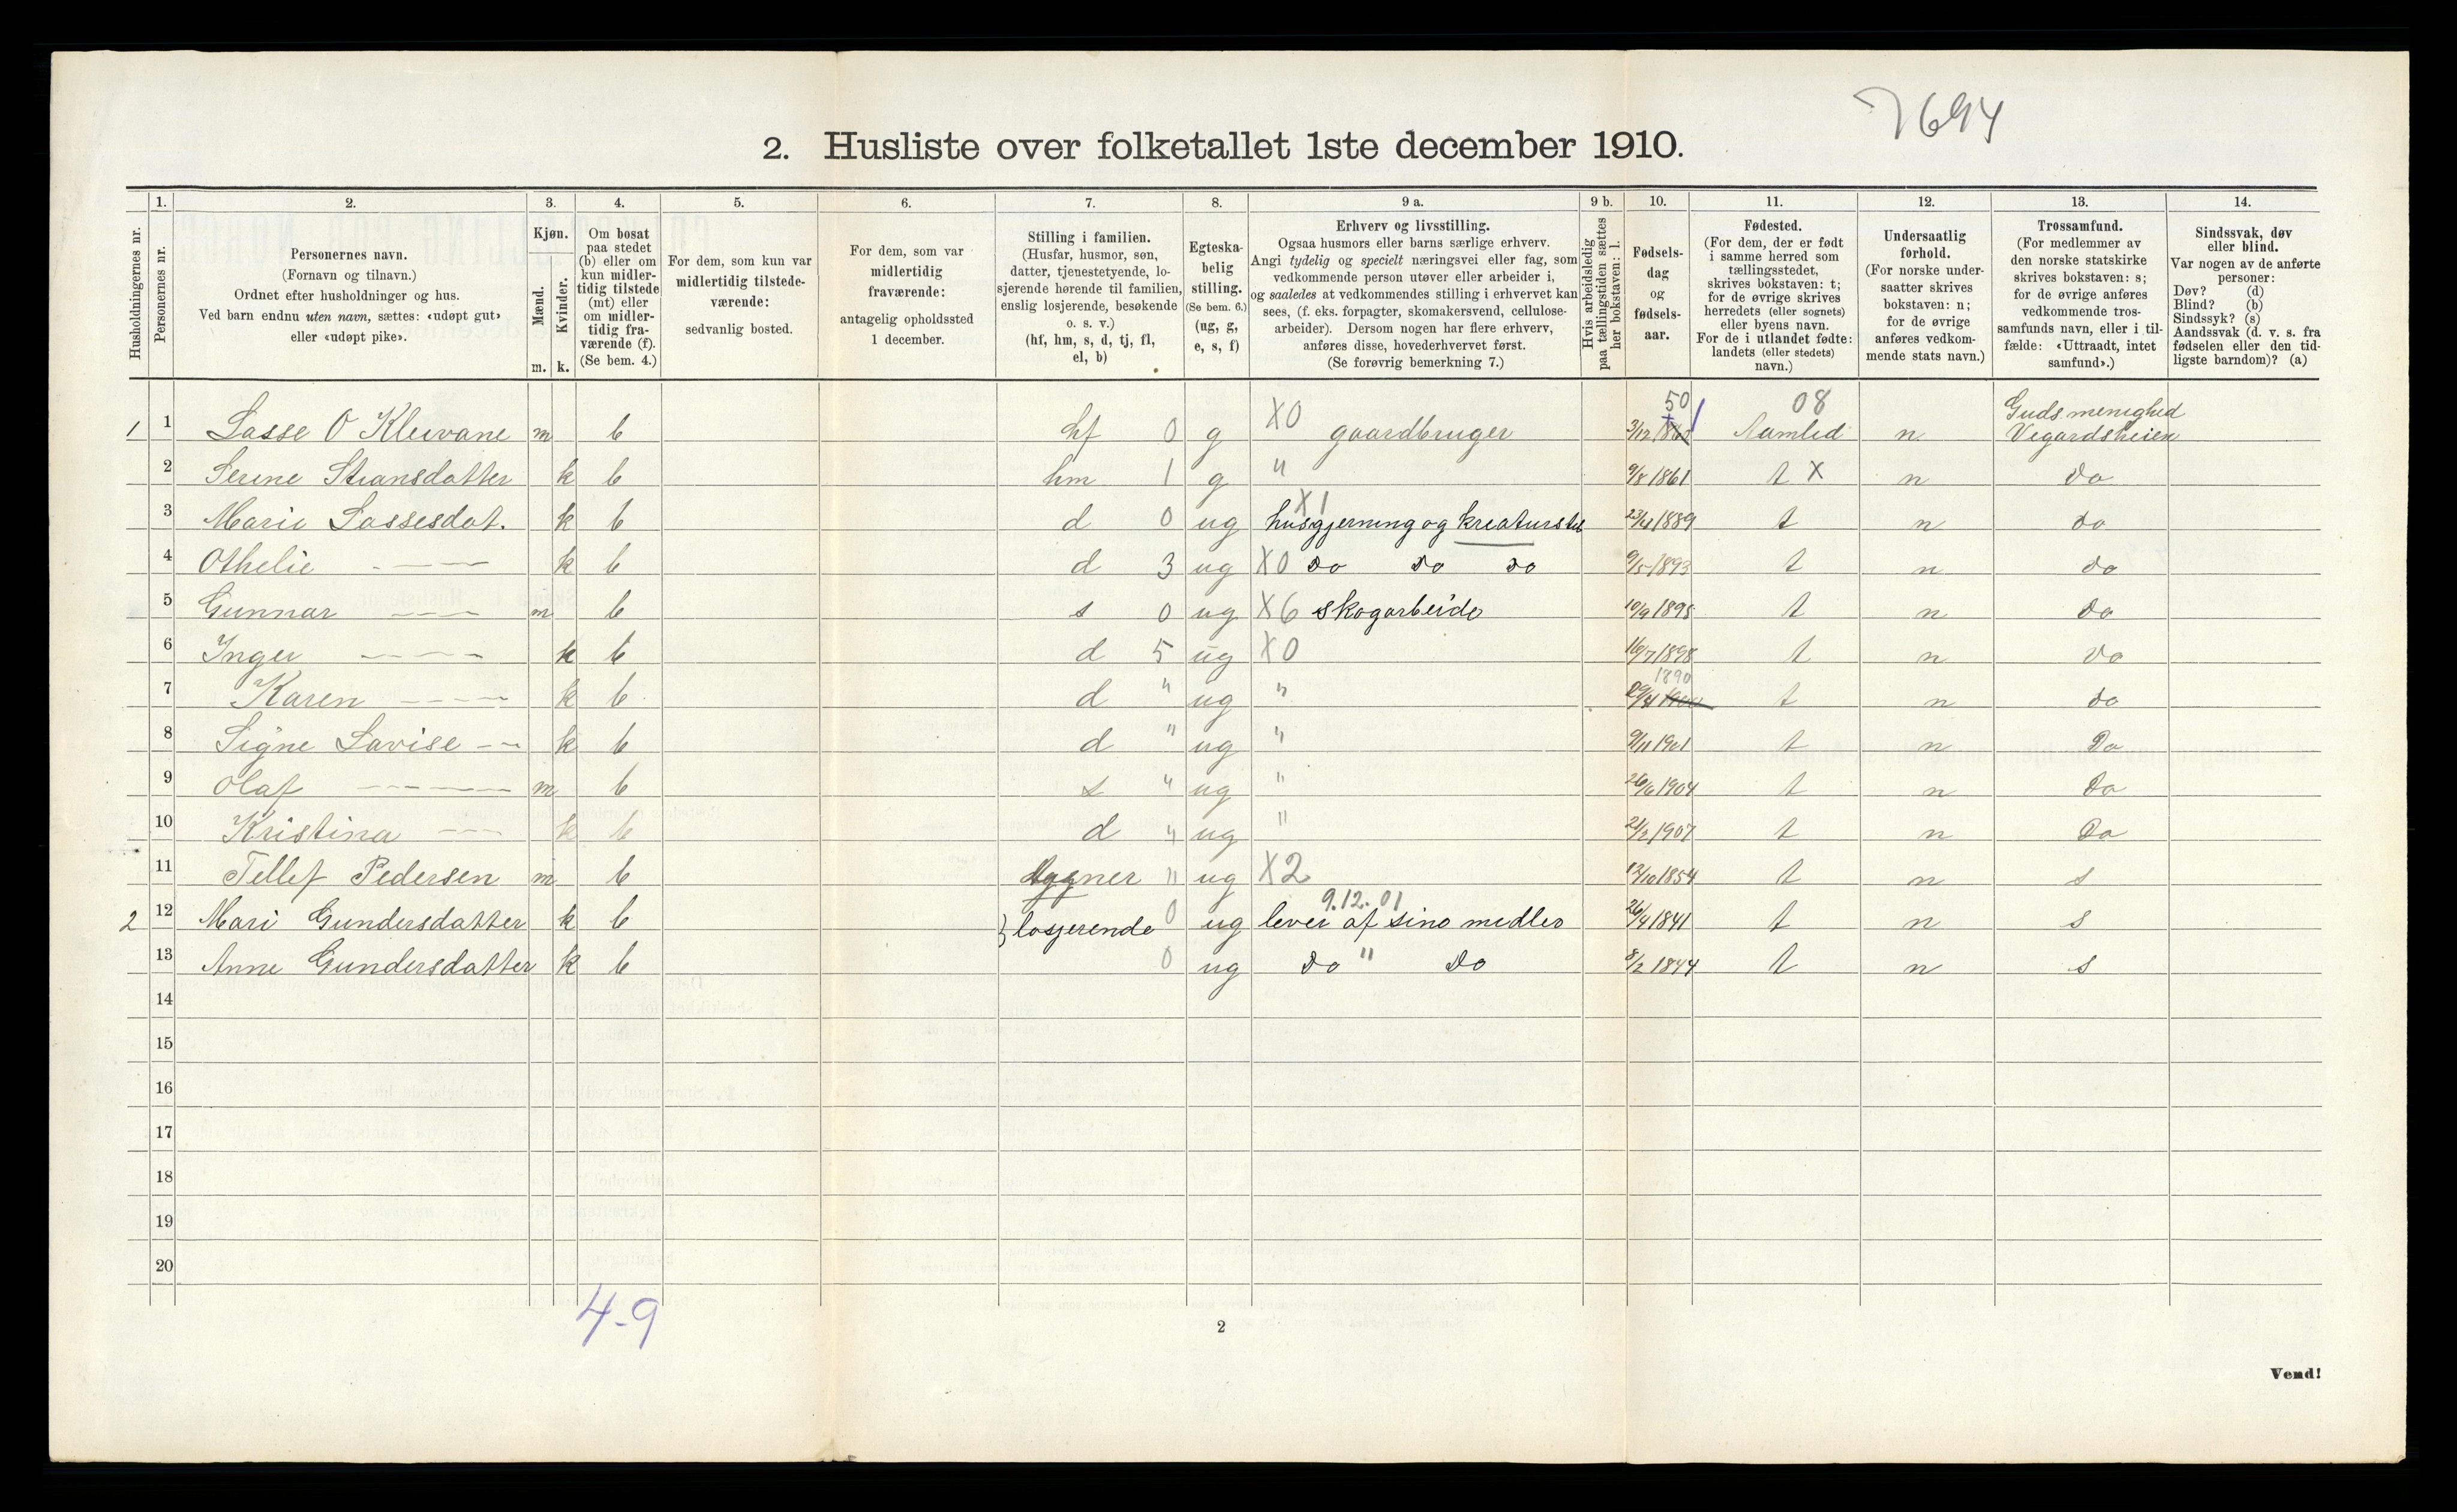 7694
2. Husliste over folketallet 1ste december 1910.
1. 2. 3. 4. 5. 6. 7. 8. 9 a. 9 b. 10. 11. 12. 13. 14.
Husholdningernes nr.
Personernes nr.
Personernes navn.
(Fornavn og tilnavn.)
Ordnet efter husholdninger og hus.
Ved barn endnu uten navn, sættes: «udøpt gut»
eller «udøpt pike».
Kjøn.
Mænd.
Kvinder.
m. k.
Om bosat
paa stedet
(b) eller om
kun midler-
tidig tilstede
(mt) eller
om midler-
tidig fra-
værende (f).
(Se bem. 4.)
For dem, som kun var
midlertidig tilstede-
værende:
sedvanlig bosted.
For dem, som var
midlertidig
fraværende:
antagelig opholdssted
1 december.
Stilling i familien.
(Husfar, husmor, søn,
datter, tjenestetyende, lo-
sjerende hørende til familien,
enslig losjerende, besøkende
o. s. v.)
(hf, hm, s, d, tj, fl,
el, b)
Egteska-
belig
stilling.
(Se bem. 6.)
(ug, g,
e, s, f)
Erhverv og livsstilling.
Ogsaa husmors eller barns særlige erhverv.
Angi tydelig og specielt næringsvei eller fag, som
vedkommende person utøver eller arbeider i,
og saaledes at vedkommendes stilling i erhvervet kan
sees, (f. eks. forpagter, skomakersvend, cellulose-
arbeider). Dersom nogen har flere erhverv,
anføres disse, hovederhvervet først.
(Se forøvrig bemerkning 7.)
Hvis arbeidsledig
paa tællingstiden sættes
her bokstaven: l.
Fødsels-
dag
og
fødsels-
aar.
Fødested.
(For dem, der er født
i samme herred som
tællingsstedet,
skrives bokstaven: t;
for de øvrige skrives
herredets (eller sognets)
eller byens navn.
For de i utlandet fødte:
landets (eller stedets)
navn.)
Undersaatlig
forhold.
(For norske under-
saatter skrives
bokstaven: n;
for de øvrige
anføres vedkom-
mende stats navn.)
Trossamfund.
(For medlemmer av
den norske statskirke
skrives bokstaven: s;
for de øvrige anføres
vedkommende tros-
samfunds navn, eller i til-
fælde: «Uttraadt, intet
samfund».)
Sindssvak, døv
eller blind.
Var nogen av de anførte
personer:
Døv? (d)
Blind? (b)
Sindssyk? (s)
Aandssvak (d. v. s. fra
fødselen eller den tid-
ligste barndom)? (a)
50 08 Guds menighed
1 1 Lasse O Kleivane m b hf 0 g X0 gaardbruger 3/12 Aamlid n Vegardsheien
2 Serine Stiansdatter k b hm 1 g " 9/8 1861 t X n do
X1
3 Marie Lassesdat. k b d 0 ug husgjerning og kreaturstel 1889 t n do
4 Othelie - — — k b d 3 ug X0 do do do 9/5 1893 t n do
5 Gunnar — — m b s 0 ug X6 skogarbeide 10/9 1895 t n do
6 Inger — — — k b d 5 ug X0 16/7 1898 t n do
1890
7 Karen — — — k b d " ug " 29/4 t n do
8 Signe Lovise — — k b d " ug " 9/11 1901 t n Do
9 Olaf — — — m b s " ug " 26/6 1904 t n Do
10 Kristina — — k b d " ug " 21/2 1907 t n Do
11 Tellef Pedersen m b " ug X2 12/10 1854 t n s
9.12.01
2 12 Mari Gundersdatter k b } losjerende 0 ug lever af sine midler 26/4 1841 t n s
13 Anne Gundersdatter k b 0 ug Do " Do 8/2 1844 t n s
14
15
16
17
18
19
20
4-9
2
Vend!